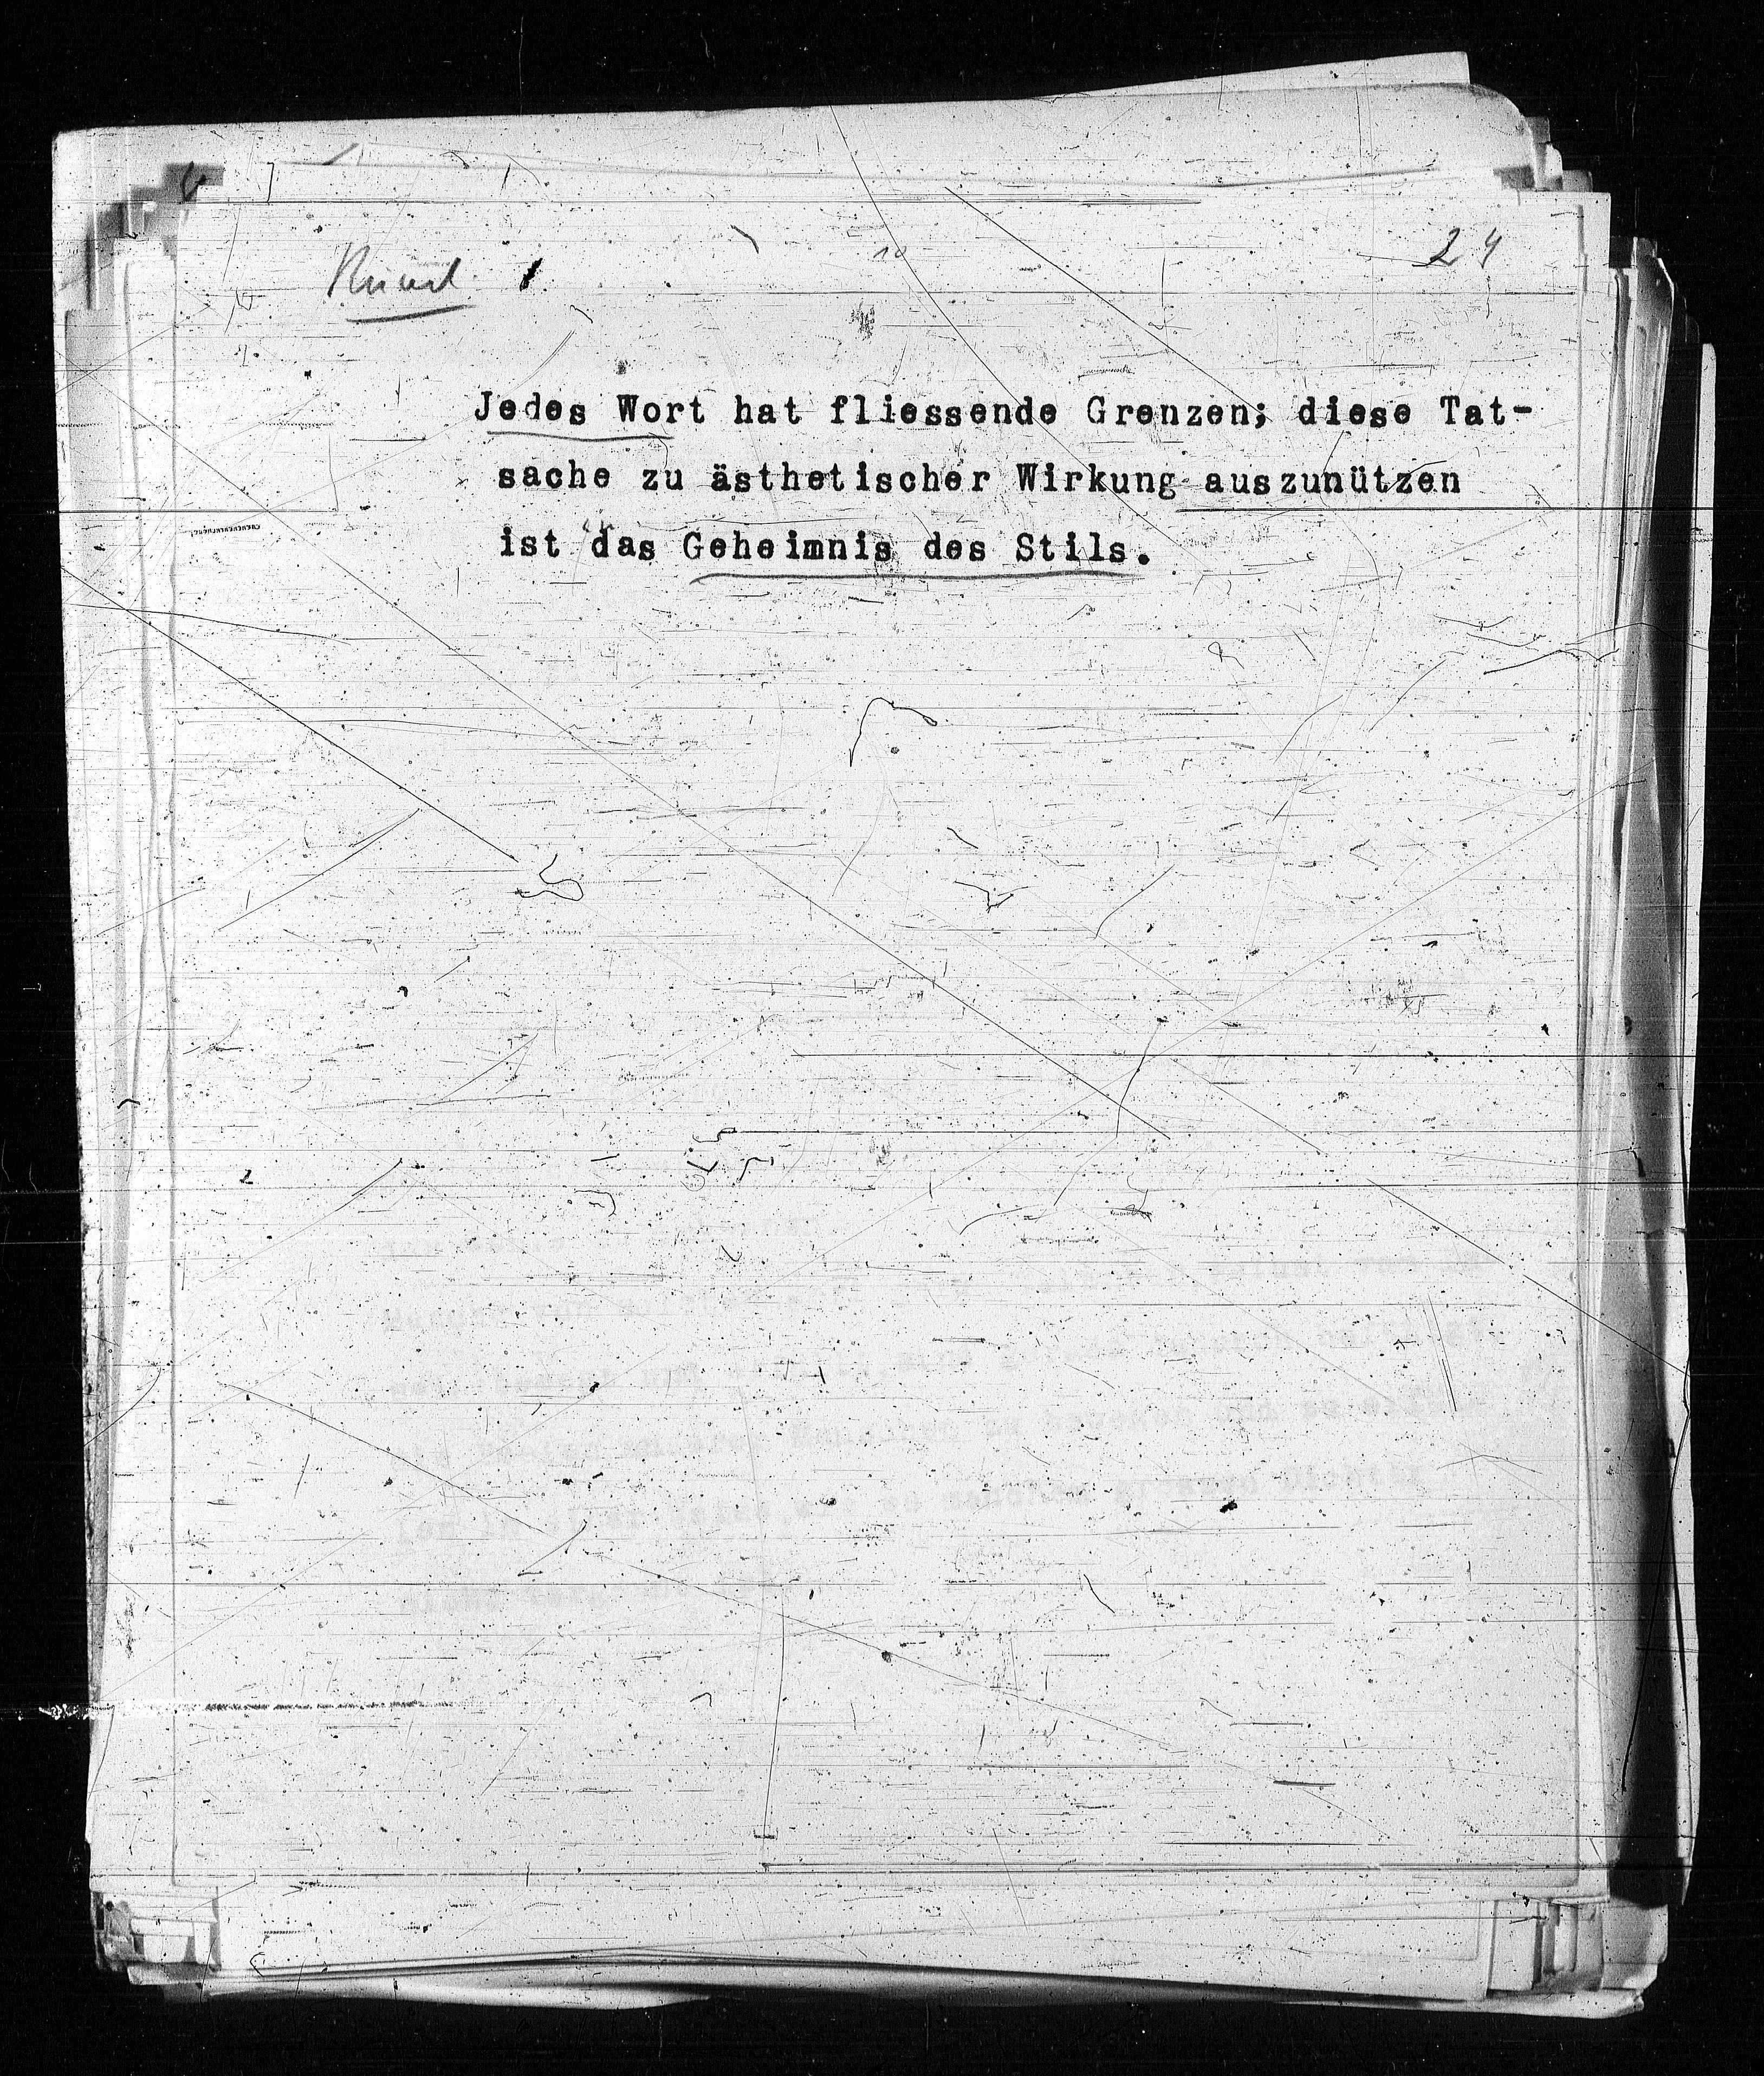 Kunst 1
24
Jedes Wort hat fliessende Grenzen; diese Tat-
sache zu ästhetischer Wirkung auszunützen
ist das Geheimnis des Stils.